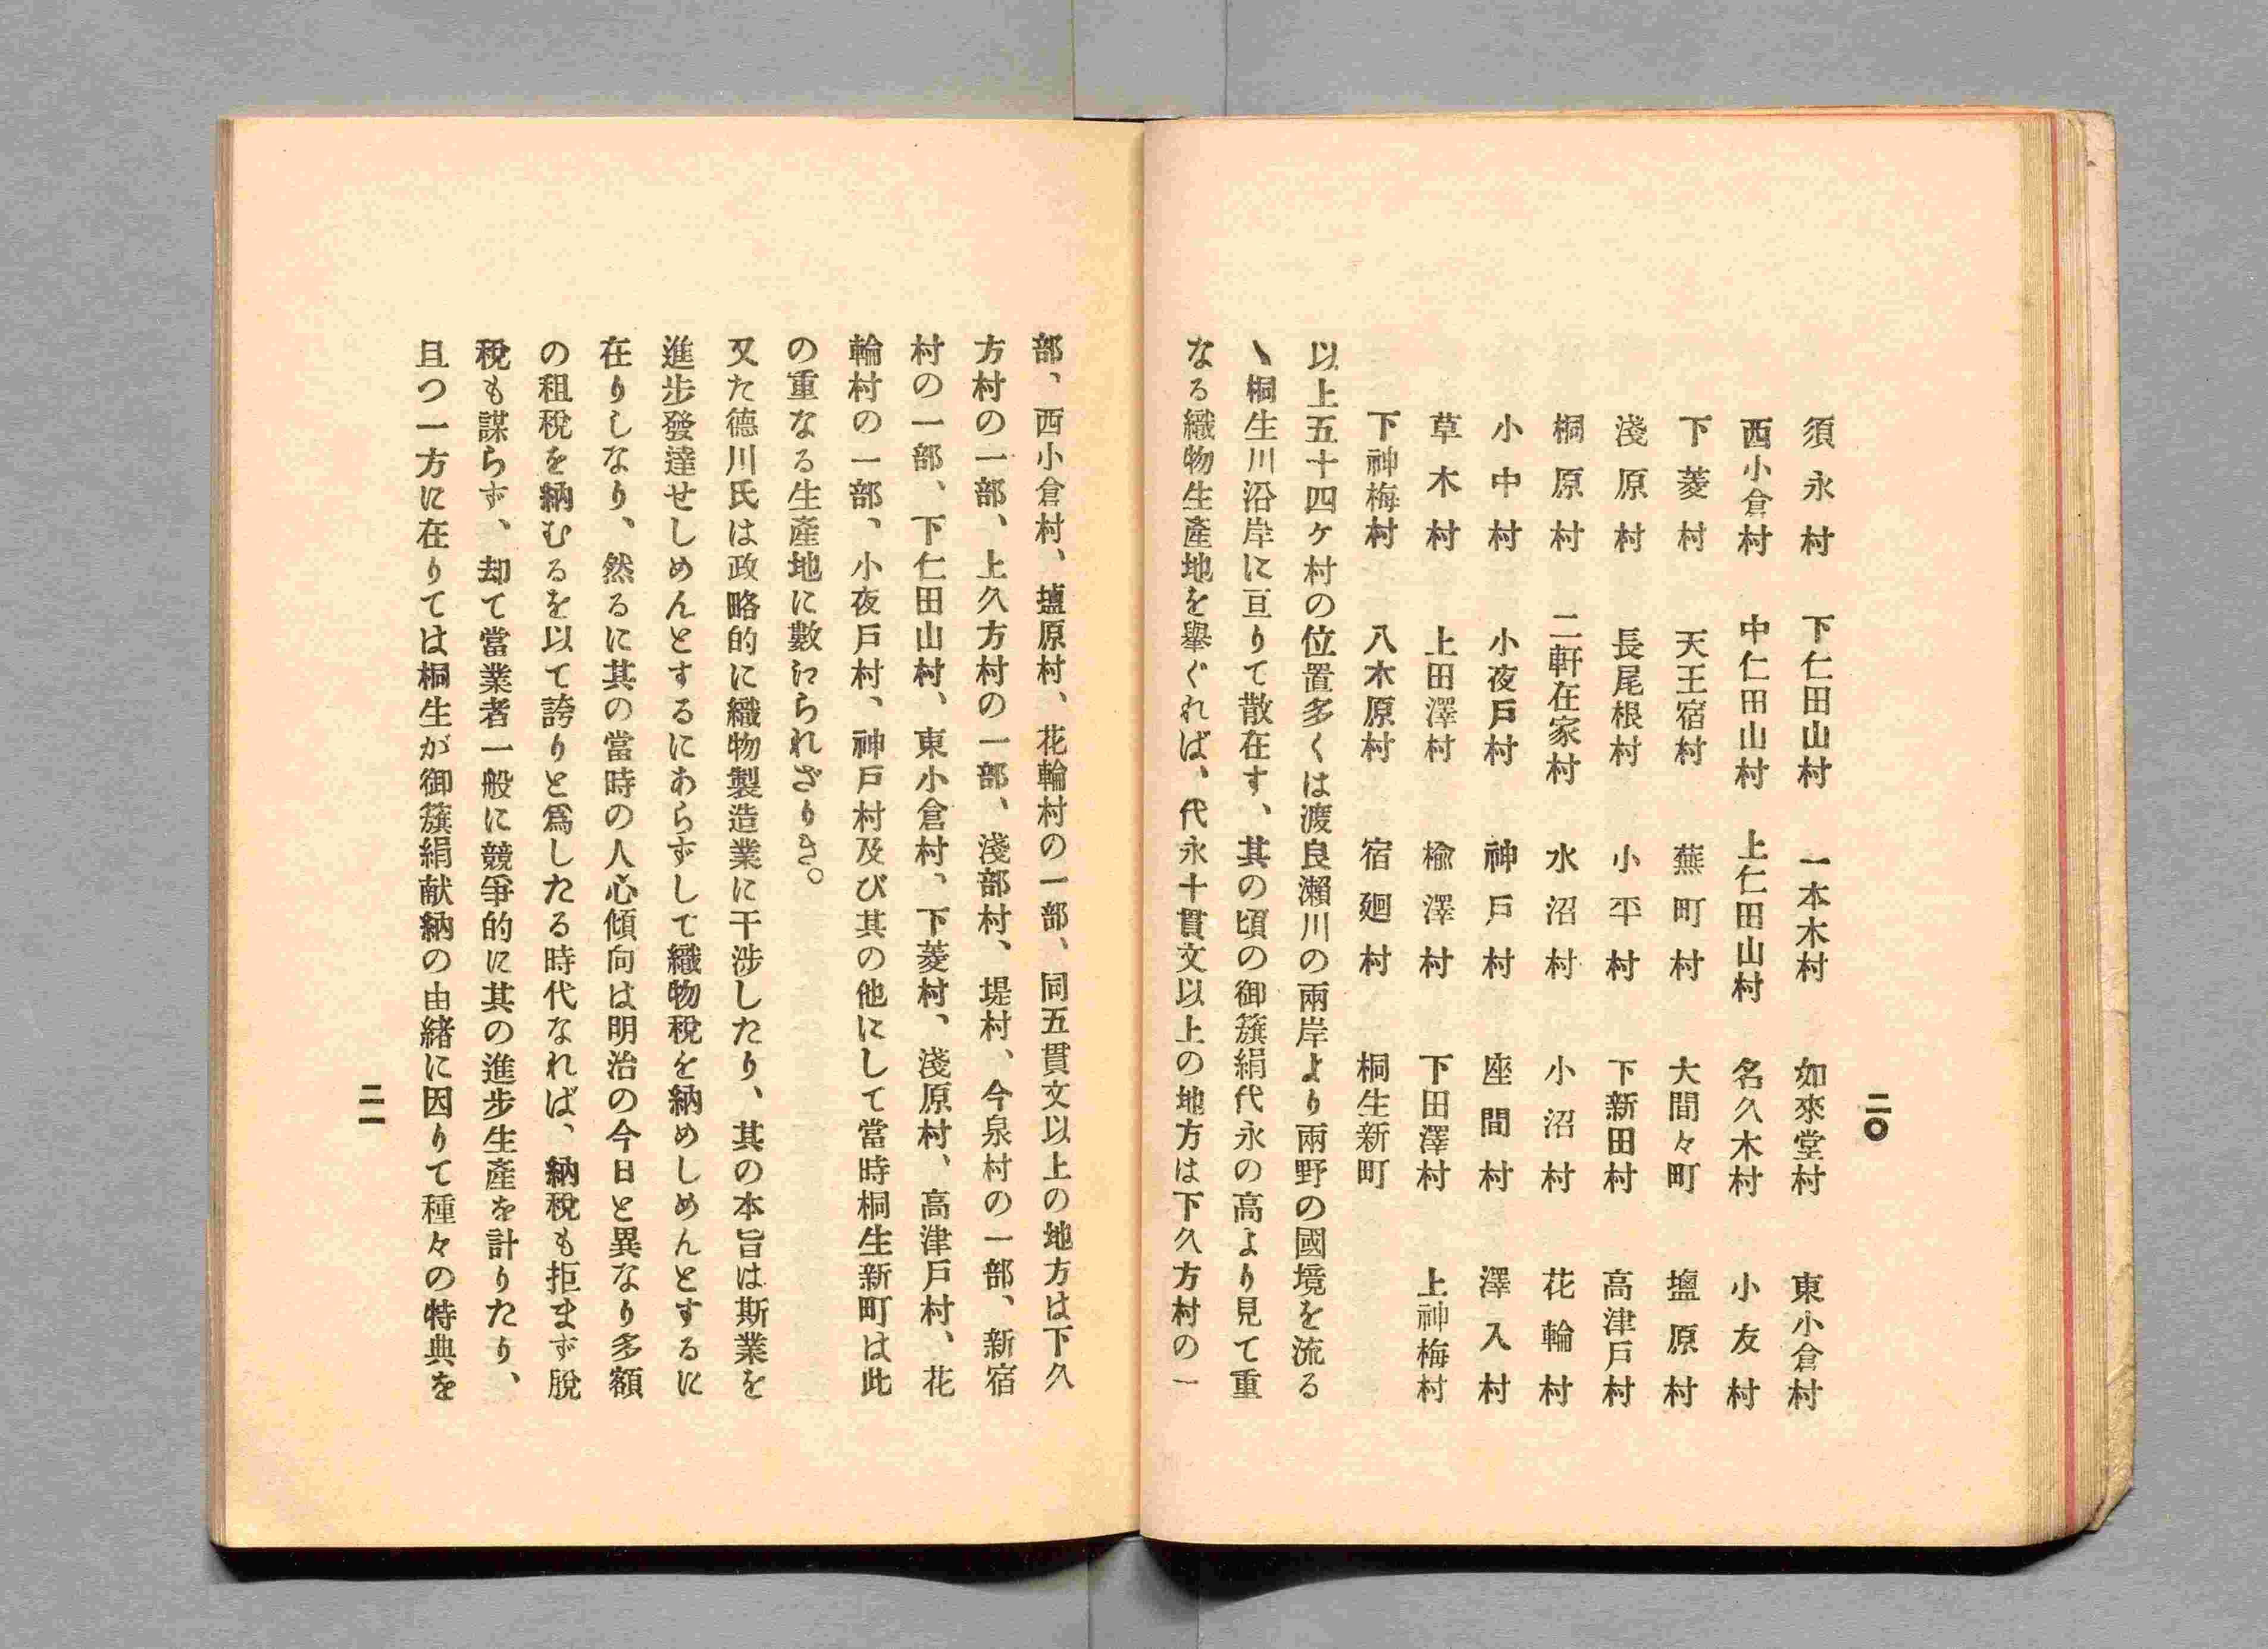 二〇
須永村　下仁田山村　一本木村　如來堂村　東小倉村
西小倉村　中仁田山村　上仁田山村　名久木村　小友村
下菱村　天王宿村　蕪町村　大間々町　塩原村
淺原村　長尾根村　小平村　下新田村　高津戸村
桐原村　二軒在家村　水沼村　小沼村　花輪村
小中村　小夜戸村　神戸村　座間村　澤入村
草木村　上田澤村　楡澤村　下田澤村　上神梅村
下神梅村　八木原村　宿廻村　桐生新町
以上五十四ヶ村の位置多くは渡良瀨川の兩岸より兩野の國境を流る
ヽ桐生川沿岸に亘りて散在す、其の頃の御籏絹代永の高より見て重
なる織物生產地を擧ぐれば、代永十貫文以上の地方は下久方村の一
部、西小倉村、塩原村、花輪村の一部、同五貫文以上の地方は下久
方村の一部、上久方村の一部、淺部村、堤村、今泉村の一部、新宿
村の一部、下仁田山村、東小倉村、下菱村、淺原村、高津戸村、花
輪村の一部、小夜戸村、神戸村及び其の他にして當時桐生新町は此
の重なる生產地に數へられざりき。
又た德川氏は政略的に織物製造業に干涉したり、其の本旨は斯業を
進步發達せしめんとするにあらずして織物稅を納めしめんとするに
在りしなり、然るに其の當時の人心傾向は明治の今日と異なり多額
の租稅を納むるを以て誇りと爲したる時代なれば、納稅も拒まず脫
稅も謀らず、却て當業者一般に競爭的に其の進步生產を計りたり、
且つ一方に在りては桐生が御籏絹献納の由緖に因りて種々の特典を
二一